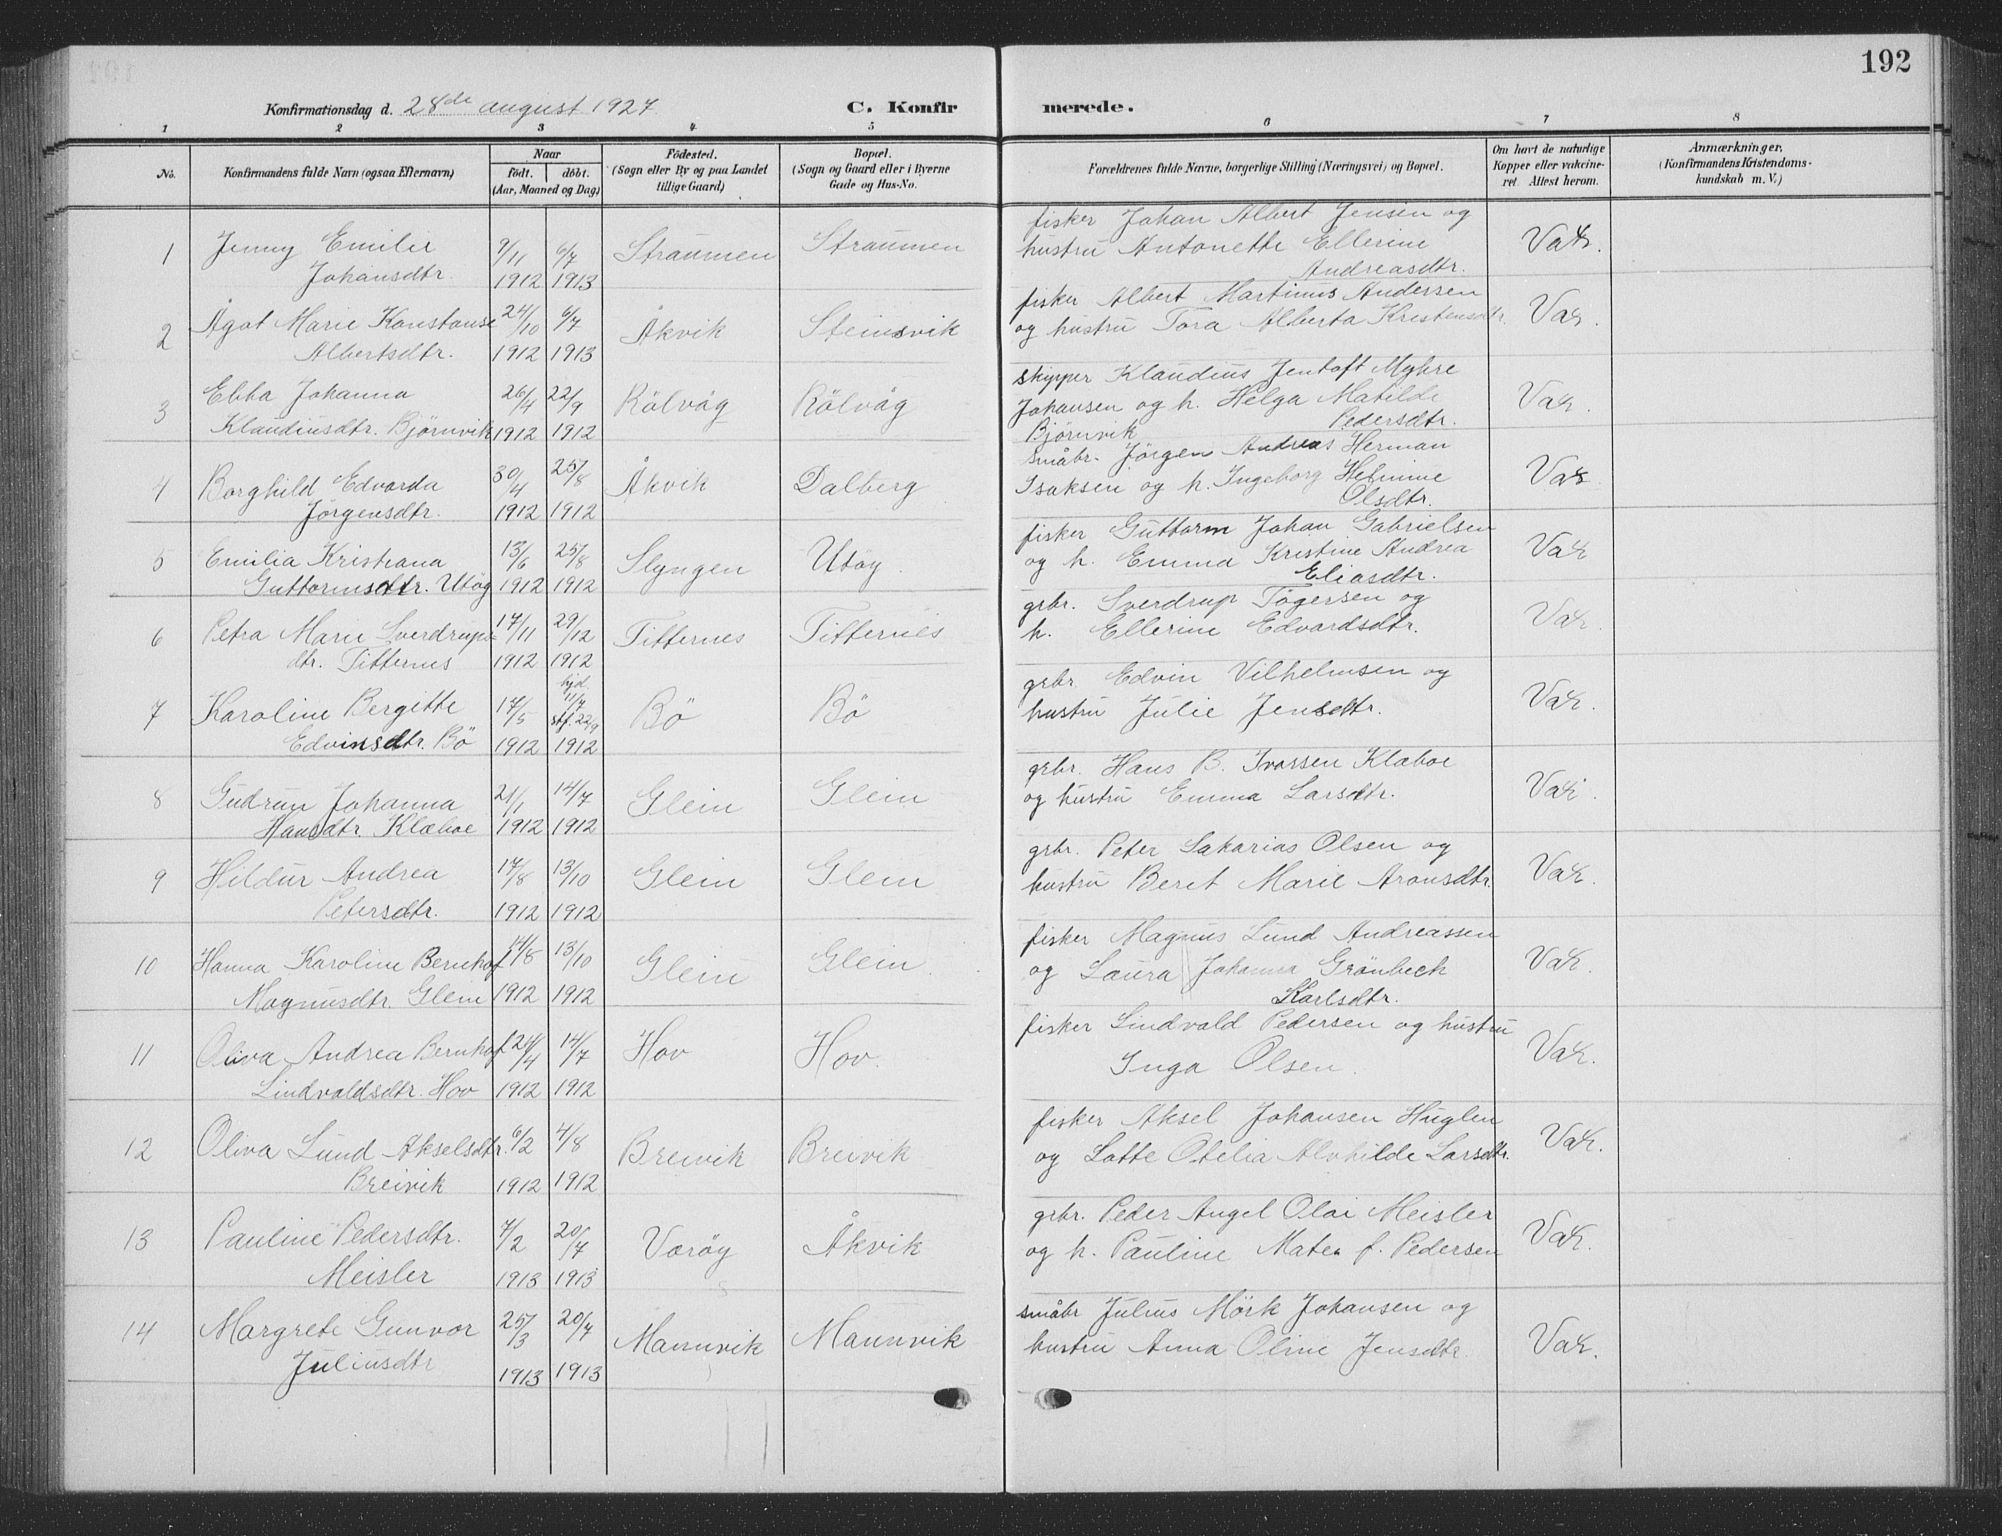 192
Konfirmationsdag d. 28de august 1927
C. Konfirmerede.
1 2 3 4 5 6 7 8
No.
Konfirmandens fulde Navn (ogsaa Efternavn)
Naar
født. døbt.
(Aar, Maaned og Dag)
Fødested.
(Sogn eller By og paa Landet
tillige Gaard)
Bopæl.
(Sogn og Gaard eller i Byerne
Gade og Hus-No.
Forældrenes fulde Navne, borgerlige Stilling (Næringsvei) og Bopæl.
Om havt de naturlige
Kopper eller vakcine-
ret. Attest herom.
Anmærkninger.
(Konfirmandens Kristendoms-
kundskab m. V.)
1 Jenny Emilie 9/11 6/7 Straumen Straumen fisker Johan Albert Jensen og Vak.
Johansdtr. 1912 1913 hustru Antonette Ellerine
Andreasdtr.
2 Ågot Marie Konstanse 24/10 6/7 Åkvik Steinsvik fisker Albert Martinus Andersen Vak.
Albertsdtr. 1912 1913 og hustru Tora Alberta Kristensdtr.
3 Ebba Johanna 26/4 22/9 Rölvåg Rölvåg skipper Klaudius Jentoft Myhre Vak.
Klaudiusdtr. Björnvik 1912 1912 Johansen og h. Helga Matilde
Björnvik Pedersdtr.
4 Borghild Edvarda 30/4 25/8 Åkvik Dalberg småbr. Jörgen Andreas Herman Vak
Jörgensdtr. 1912 1912 Isaksen og h. Ingeborg Helmine
Olsdtr.
5 Emilia Kristiana 13/6 25/8 Slyngen Utöy. fisker Guttorm Johan Gabrielsen Vak
Guttormsdtr. Utöy 1912 1912 og h. Emma Kristine Andrea
Eliasdtr.
6 Petra Marie Sverdrups 17/11 29/12 Titternes Titternes grbr. Sverdrup Tögersen og Vak
dtr. Titternes 1912 1912 h. Ellerine Edvardsdtr.
7 Karoline Bergitte 17/5 hjd. 11/7 Bö Bö grbr. Edvin Vilhelmsen og Vak.
Edvinsdtr. Bö 1912 stf. 22/9 1912 hustru Julie Jensdtr.
8 Gudrun Johanna 21/1 14/7 Glein Glein grbr. Hans B. Ivarsen Klæboe Vak.
Hansdtr. Klæboe 1912 1912 og hustru Emma Larsdtr.
9 Hildur Andrea 17/8 13/10 Glein Glein grbr. Peter Sakarias Olsen og Vak.
Petersdtr. 1912 1912 hustru Beret Marie Aronsdtr.
10 Hanna Karoline Bernhof 14/8 13/10 Glein Glein. fisker Magnus Lund Andreassen Vak.
Magnusdtr. Glein 1912 1912 og Laura Johanna Grönbech
Karlsdtr.
11 Oliva Andrea Bernhof 24/4 14/7 Hov Hov. fisker Lindvald Pedersen og hustru Vak.
Lindvaldsdtr. Hov 1912 1912 Inga Olsen.
12 Oliva Lund Akselsdtr. 6/2 4/8 Breivik Breivik fisker Aksel Johansen Huglen Vak.
Breivik 1912 1912 og Lotte Otelia Alvhilde Larsdtr.
13 Pauline Pedersdtr. 7/2 20/7 Væröy Åkvik grbr. Peder Angel Olai Meisler Vak.
Meisler 1913 1913 og h. Pauline Matea f. Pedersen
14 Margrete Gunvor 25/3 20/7 Mannvik Mannvik småbr Julius Mörk Johansen og Vak.
Juliusdtr 1913 1913 hustru Anna Oline Jensdtr.